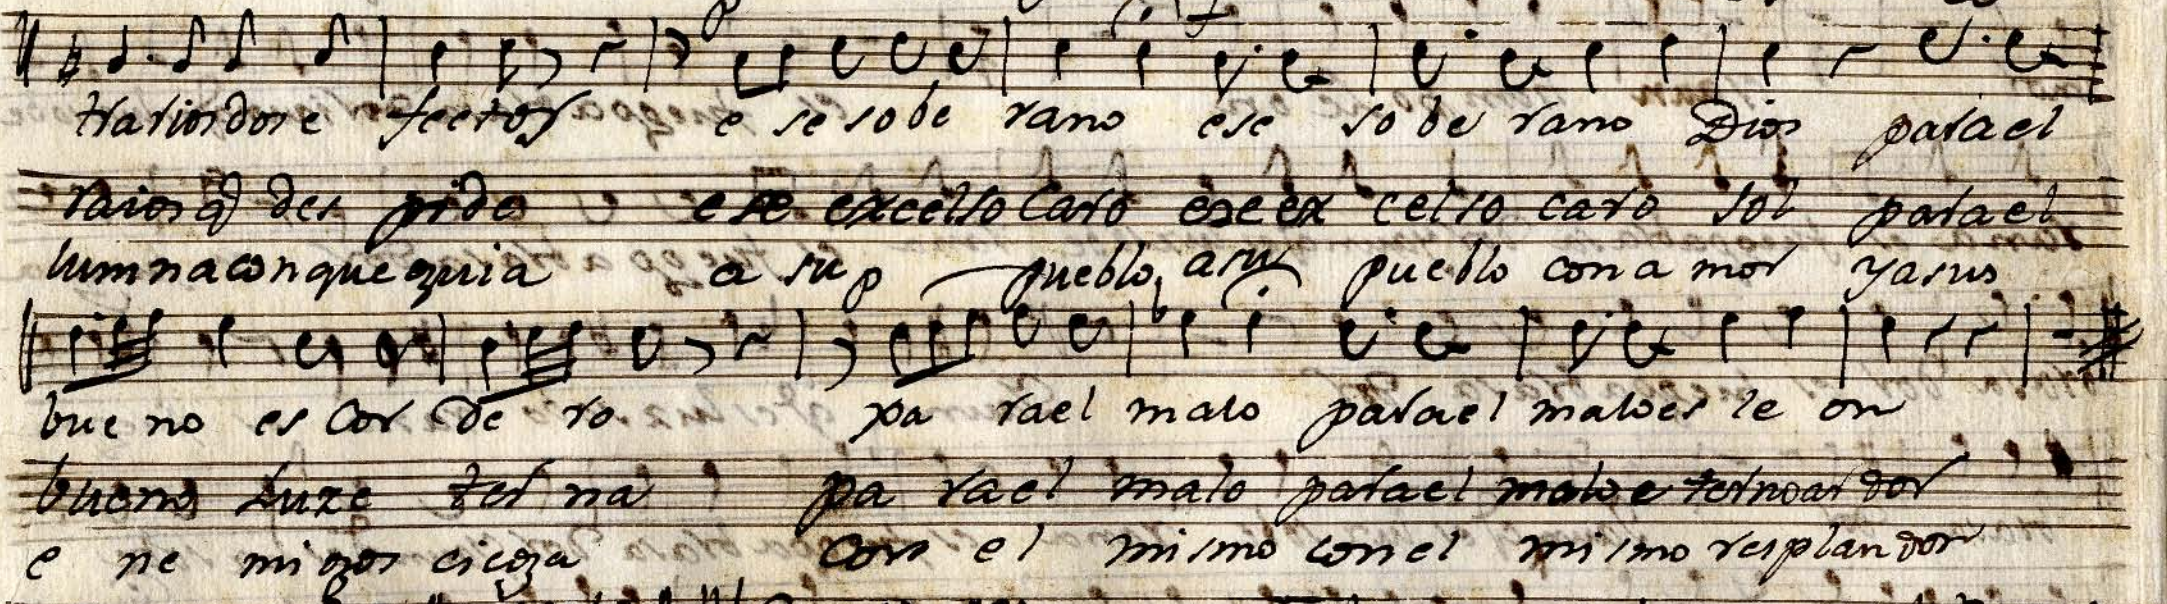 trarios dos e fectos e se sobe rano ese so be rano Dios para el
raios q des pide ese excelso Caro ese ex celso caro sol para el
lumna con que guia a su pueblo, a su pueblo con a mor y a sus
bue no es Cor de ro pa rael malo para el malo es le on
bueno Luz e ter na pa rael malo para el malo e terno ar dor
e ne migos ciega Con el mismo con el mismo resplandor